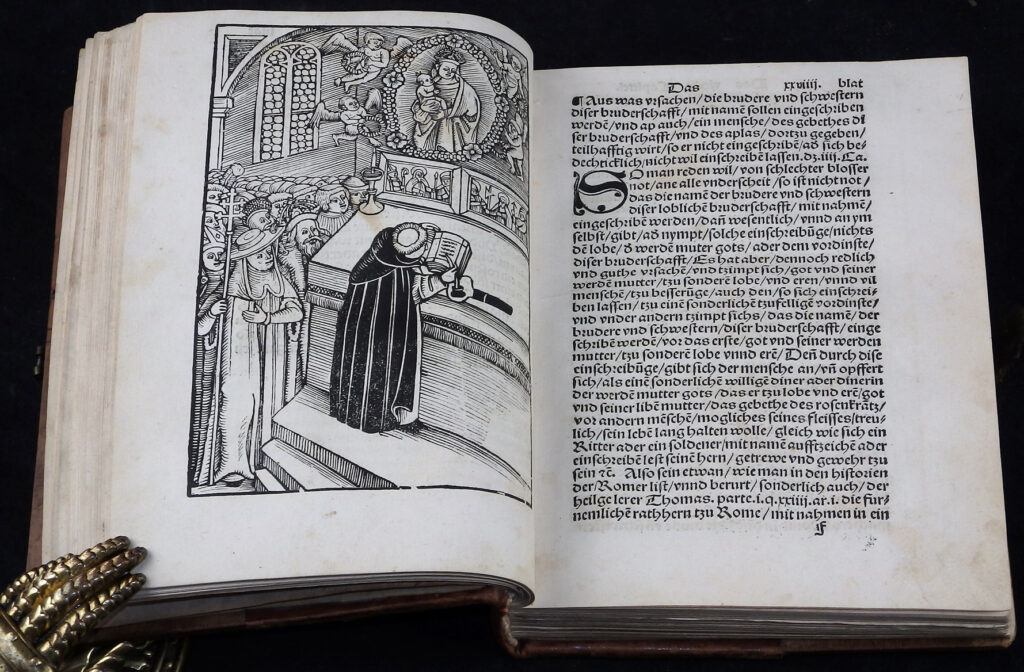 Das xxviiii. blat
¶ Aus was vrsachen/die brudere vnd schwestern
diser bruderschafft/mit namē sollen eingeschriben
werdē/vnd ap auch/ein mensche/des gebethes di
ser bruderschafft/vnd des aplas/dortzu gegeben/
teilhafftig wirt/so er nicht eingeschribē/ad̄ sich be-
dechticklich/nicht wil einschreibē lassen. dz. iiii. Ca.
SO man reden wil/von schlechter blosser
not/ane alle vnderscheit/so ist nicht not/
das die namē der brudere vnd schwestern
diser loblichē bruderschafft/mit nahmē/
eingeschribē werden/dañ wesentlich/vnnd an ym
selbst/gibt/ad̄ nympt/solche einschreibūge/nichts
dē lobe/d̄ werdē muter gots/ader dem vordinste/
diser bruderschafft/Es hat aber/dennoch redlich
vnd guthe vrsachē/vnd tzimpt sich/got vnd seiner
werdē mutter/tzu sonderē lobe/vnd eren/vnnd vil
menschē/tzu besserūge/auch den/so sich einschrei-
ben lassen/tzu einē sonderlichē tzufelligē vordinste/
vnd vnder andern tzimpt sichs/das die namē/der
brudere vnd schwestern/diser bruderschafft/einge
schribē werden/vor das erste/got vnd seiner werden
mutter/tzu sonderē lobe vnnd erē/Deñ durch dise
einschreibūge/gibt sich der mensche an/vñ opffert
sich/als einē sonderlichē willigē diner ader dinerin
der werdē mutter gots/das er tzu lobe vnd erē/got
vnd seiner libē mutter/das gebethe des rosenkrātz/
vor andern mēschē/mogliches seines fleisses/treu-
lich/sein lebē lang halten wolle/gleich wie sich ein
Ritter ader ein soldener/mit namē auffzeichē ader
einschreibē lest seinē hern/getrewe vnd gewehr tzu
sein ꝛc̄. Also sein etwan/wie man in den historien
der Romer list/vnnd berurt/sonderlich auch/der
heilge lerer Thomas. parte. i. q. xxiiii. ar. i. die fur-
nemlichē rathhern tzu Rome/mit nahmen in ein
f